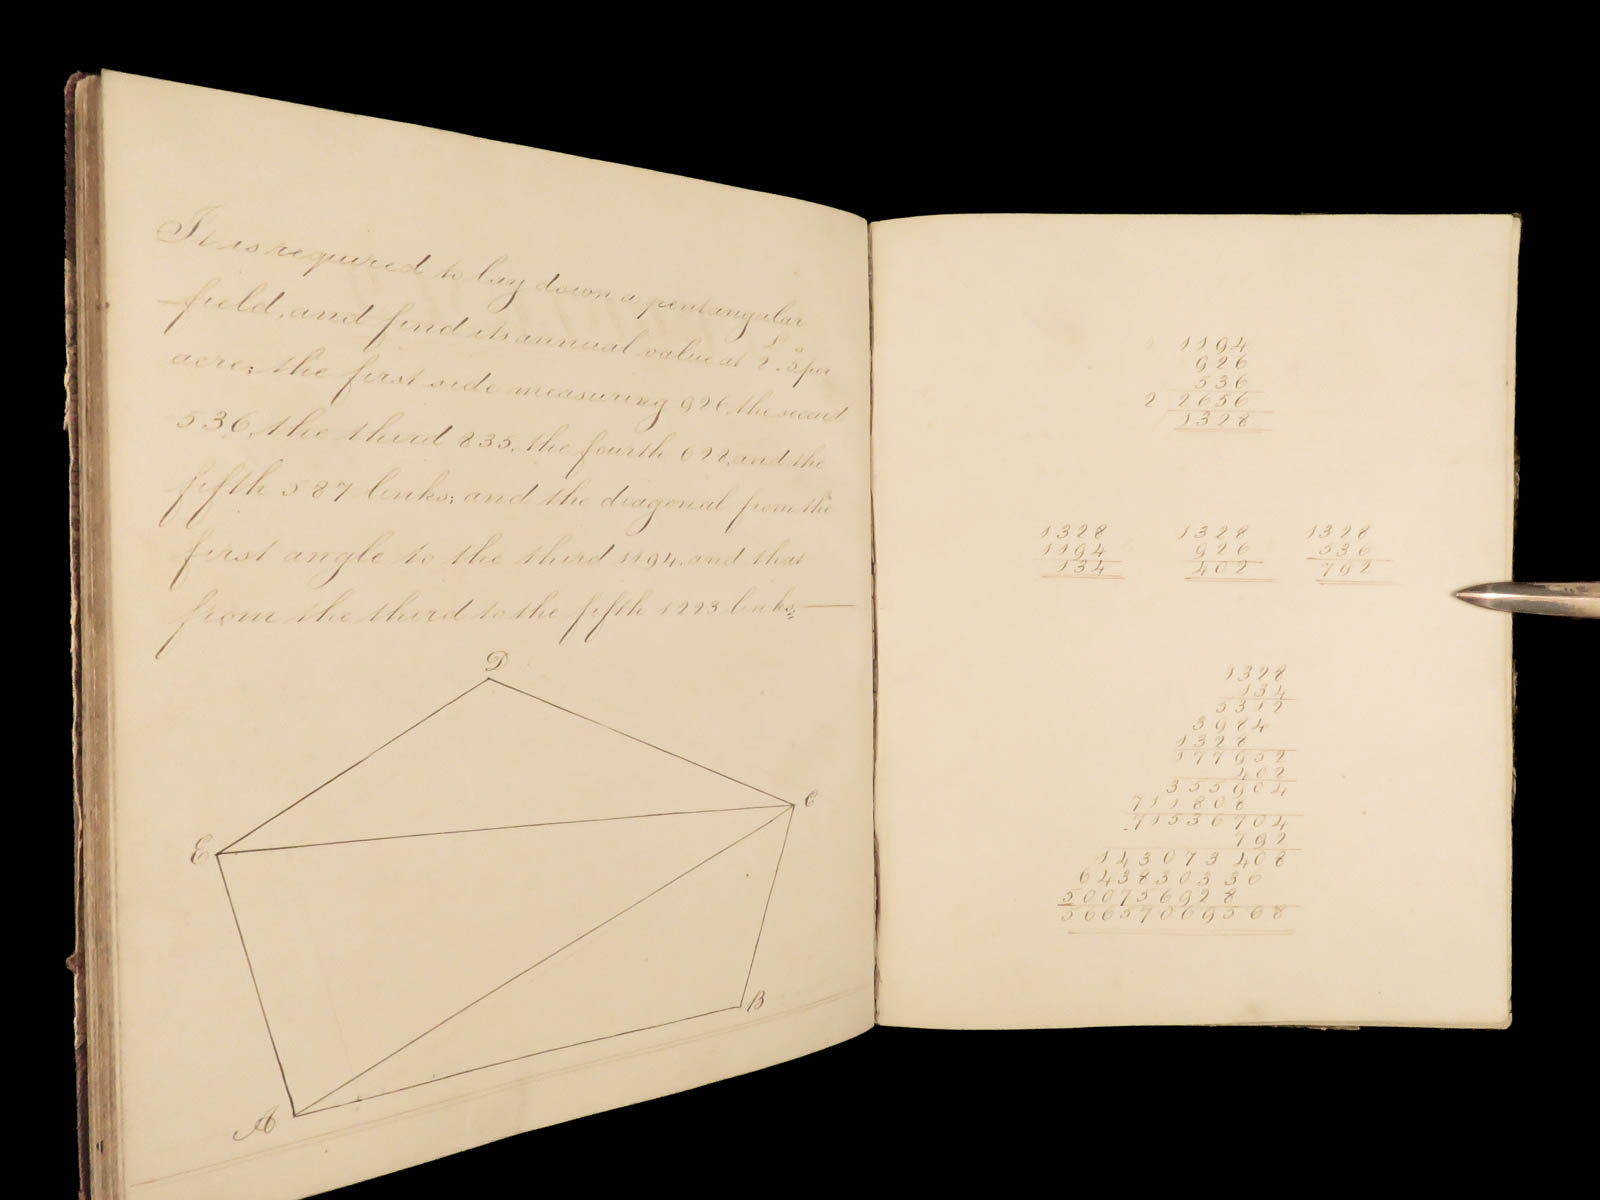 It is required to lay down a pentangular
field, and find its annual value at £2. 5s per
acre; the first side measuring 926, the second
536, the third 835, the fourth 628, and the
fifth 587 links; and the diagonal from the
first angle to the third 1194, and that
from the third to the fifth 1223 links;
D
C
E
B
A
1194
926
536
2 2656
1328
1328 1328 1328
1194 926 536
134 402 792
1328
134
5312
3984
1328
177952
402
355904
711808
71536704
792
143073408
643830336
500756928
56657069568